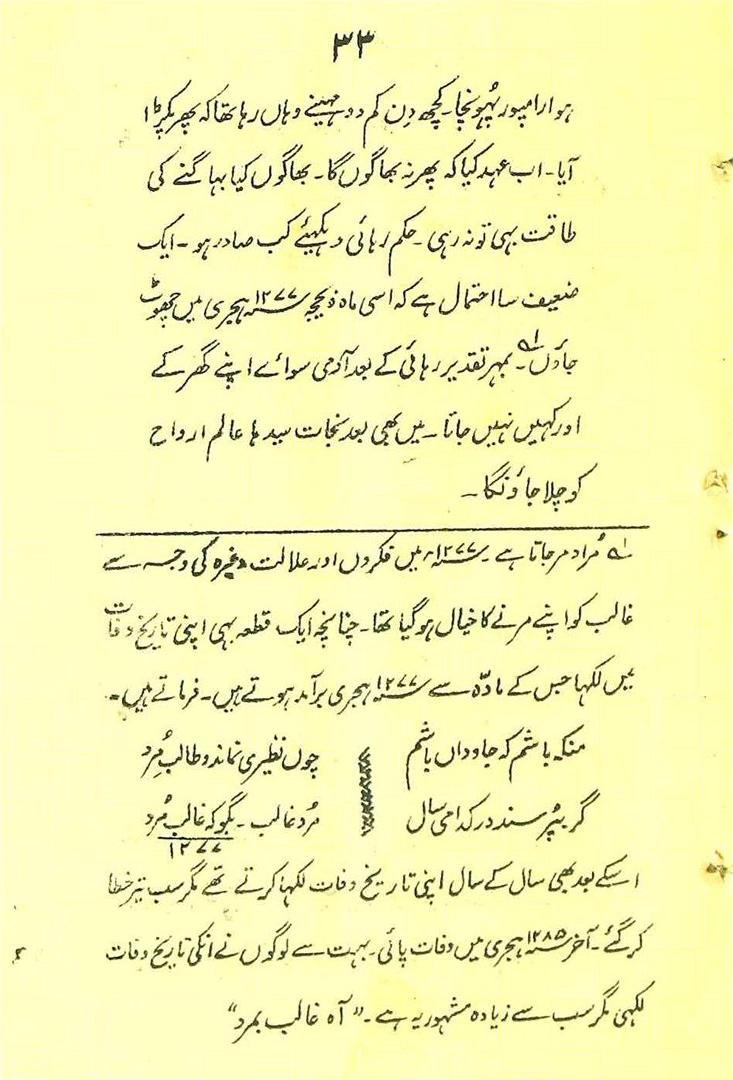 ۳۳
ہوا رامپور پُہونچا۔ کچھ دِن کم دو مہینے وہاں رہا تھا کہ پھر پکڑا
آیا۔ اب عہد کیا کہ پھر نہ بھاگوں گا۔ بھاگوں کیا بہاگنے کی
طاقت بہی تو نہ رہی۔ حکم رہائی دیکھئے کب صادر ہو۔ ایک
ضعیف سا احتمال ہے کہ اسی ماہ ذیحجہ ۱۲۷۷؁ ہجری میں چھوٹ
جاؤں۔ ۱؎ بہر تقدیر رہائی کے بعد آدمی سوائے اپنے گھر کے
اور کہیں نہیں جاتا۔ میں بھی بعد نجات سیدہا عالم ارواح
کو چلا جاؤنگا۔
۱؎ مُراد مر جاتا ہے۔ ۱۲۷۷؁ء میں فکروں اور علالت وغیرہ کی وجہ سے
غالب کو اپنے مرنے کا خیال ہوگیا تھا۔ چنانچہ ایک قطعہ بہی اپنی تاریخ وفات
میں لکہا جس کے مادّہ سے ۱۲۷۷؁ ہجری برآمد ہوتے ہیں۔ فرماتے ہیں۔
منکہ باشم کہ جاوداں باشم چوں نظیری نماند و طالب مُرد
گر بپُرسند در کدامی سال مُرد غالب۔ بگو کہ غالب مُرد
۱۲۷۷
اسکے بعد بھی سال کے سال اپنی تاریخ وفات لکہا کرتے تھے مگر سب تیر خطا
کر گئے۔ آخر ۱۲۸۵؁ ہجری میں وفات پائی۔ بہت سے لوگوں نے انکی تاریخ وفات
لکہی مگر سب سے زیادہ مشہور یہ ہے۔ "آہ غالب بمرد"